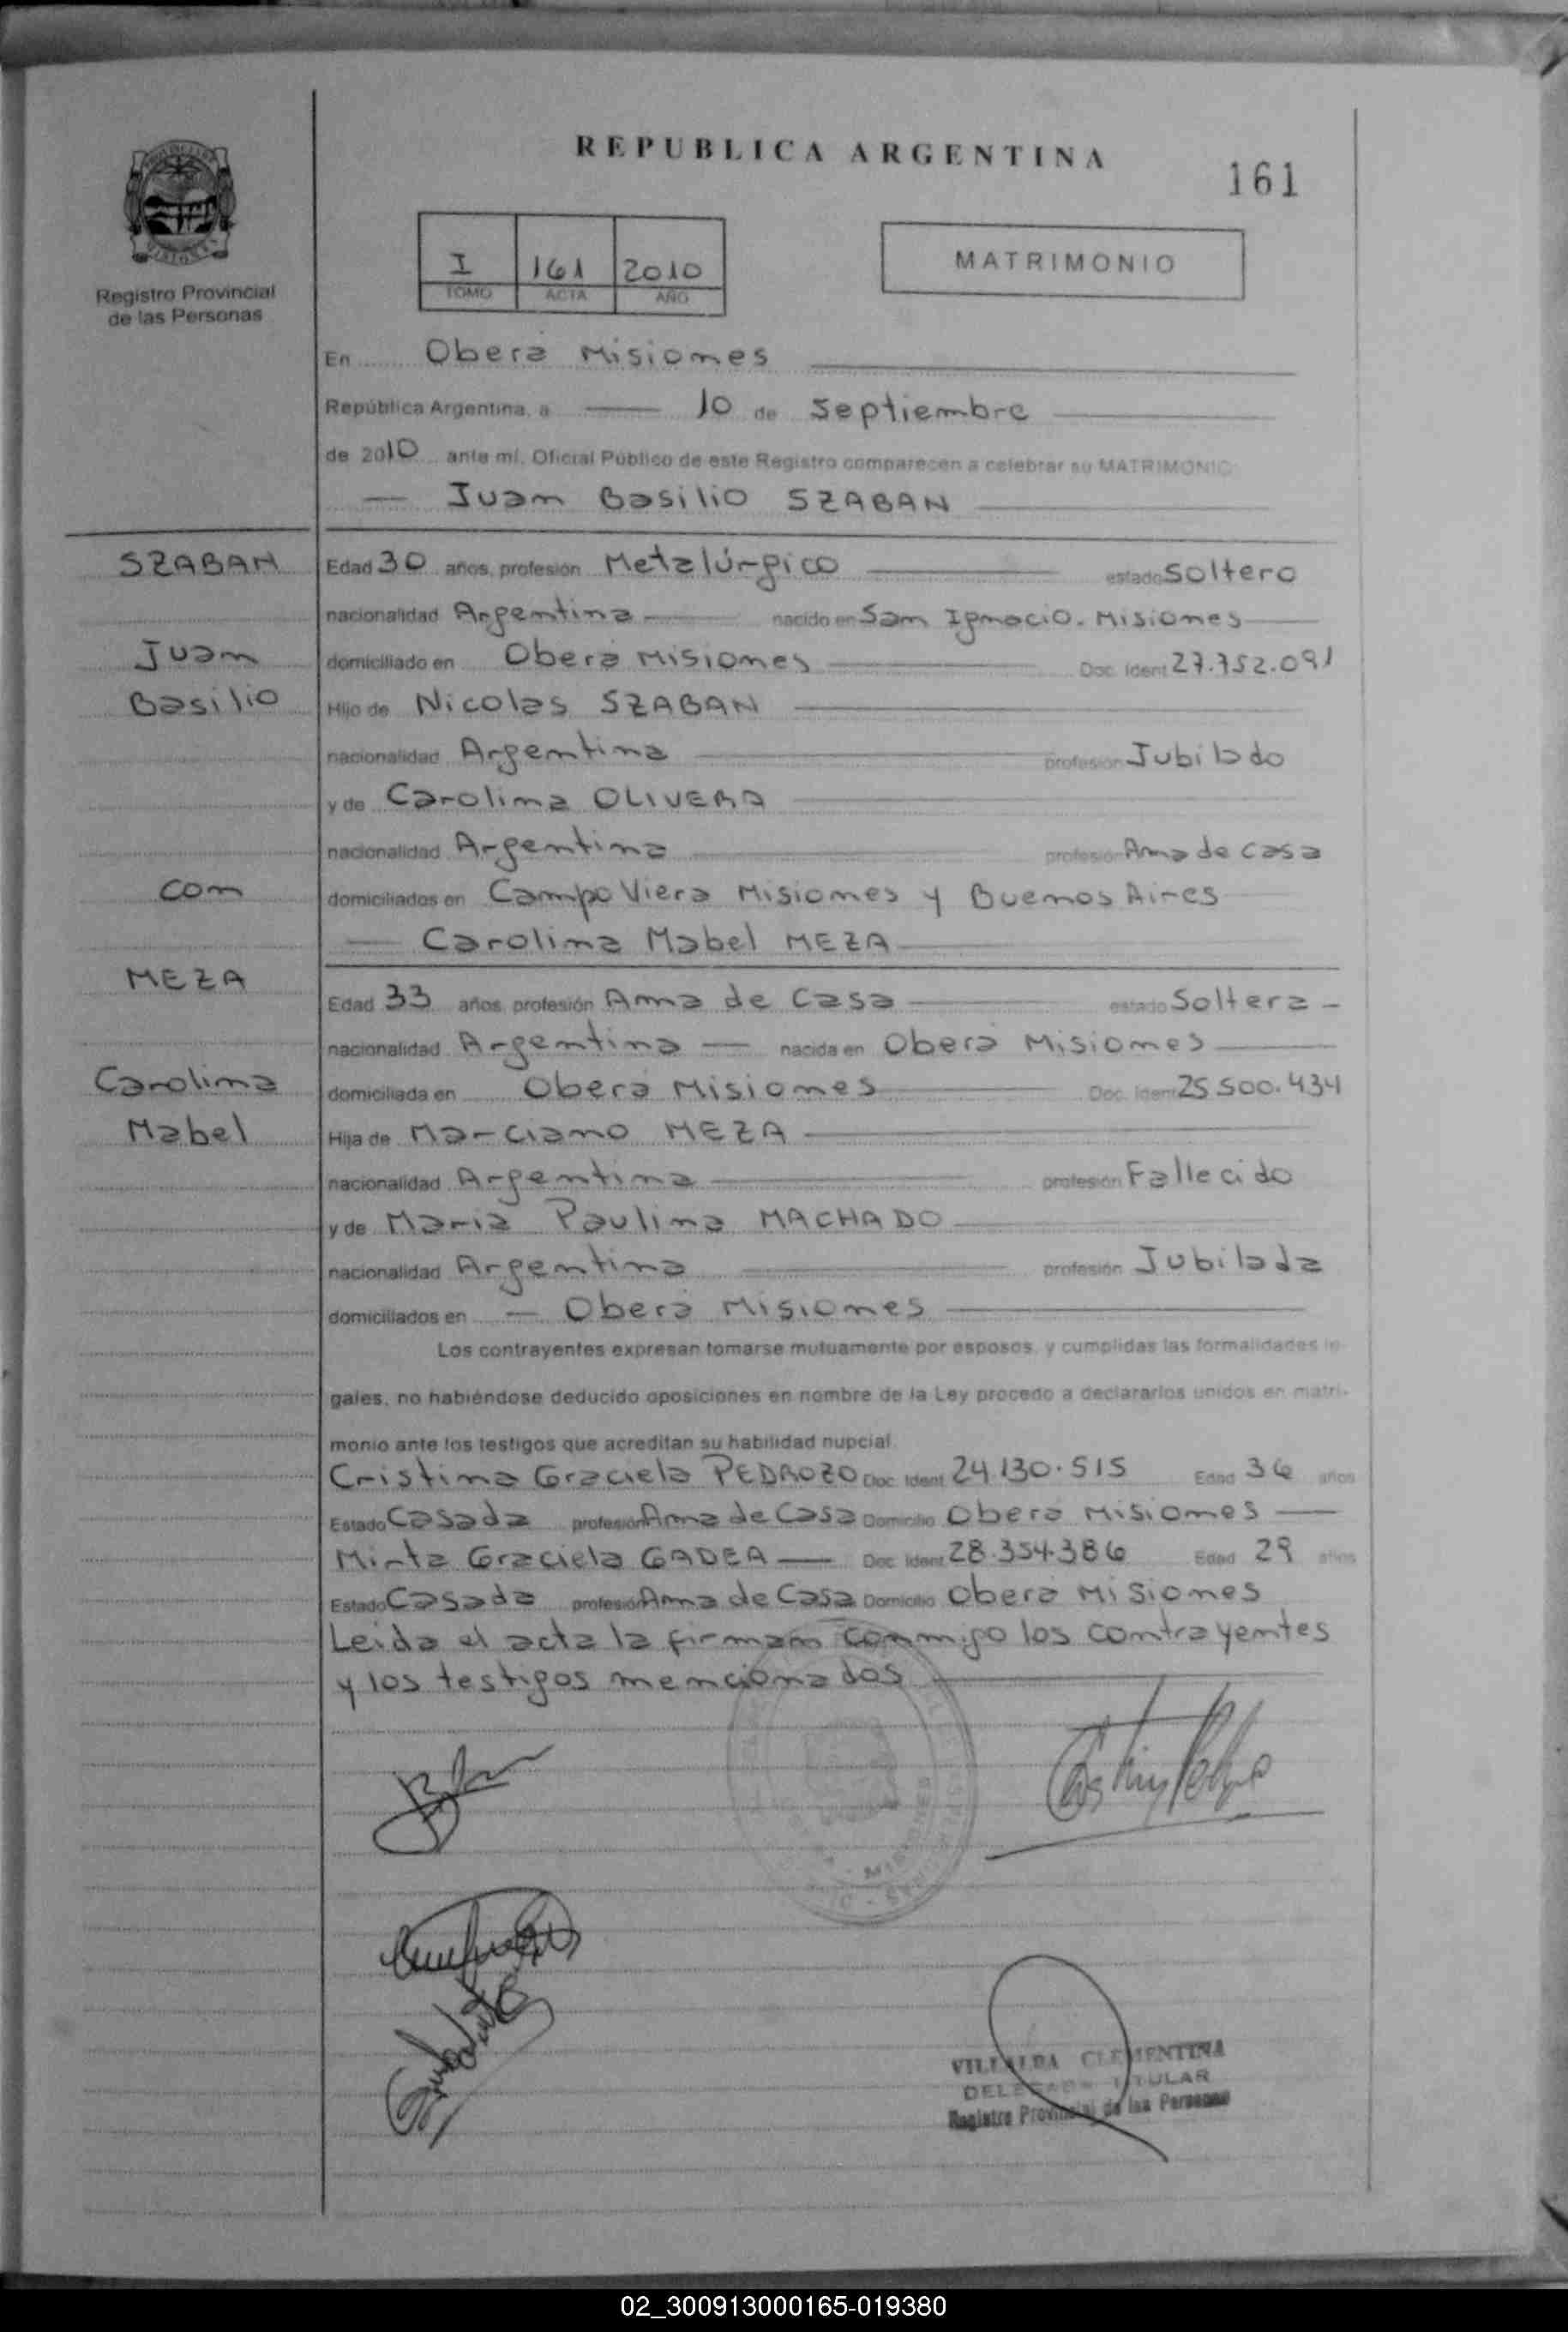 REPUBLICA ARGENTINA
161
MISIONES
Registro Provincial
de las Personas
I 161 2010
TOMO ACTA AÑO
MATRIMONIO
En Oberá Misiones
República Argentina, a 10 de Septiembre
de 2010 ante mí, Oficial Público de este Registro comparecen a celebrar su MATRIMONIO
Juan Basilio SZABAN
SZABAN
Edad 30 años, profesión Metalúrgico estado Soltero
nacionalidad Argentina nacido en San Ignacio. Misiones
Juan
domiciliado en Oberá Misiones Doc. Ident 27.752.091
Basilio
Hijo de Nicolas SZABAN
nacionalidad Argentina profesión Jubilado
y de Carolina OLIVERA
nacionalidad Argentina profesión Ama de casa
con
domiciliados en Campo Viera Misiones y Buenos Aires
Carolina Mabel MEZA
MEZA
Edad 33 años, profesión Ama de Casa estado Soltera
nacionalidad Argentina nacida en Oberá Misiones
Carolina
domiciliada en Oberá Misiones Doc. Ident 25.500.434
Mabel
Hija de Marciano MEZA
nacionalidad Argentina profesión Fallecido
y de Maria Paulina MACHADO
nacionalidad Argentina profesión Jubilada
domiciliados en Oberá Misiones
Los contrayentes expresan tomarse mutuamente por esposos, y cumplidas las formalidades le-
gales, no habiéndose deducido oposiciones en nombre de la Ley procedo a declararlos unidos en matri-
monio ante los testigos que acreditan su habilidad nupcial.
Cristina Graciela PEDROZO Doc. Ident 24.130.515 Edad 36 años
Estado Casada profesión Ama de Casa Domicilio Oberá Misiones
Mirta Graciela GADEA Doc. Ident 28.354.386 Edad 29 años
Estado Casada profesión Ama de Casa Domicilio Oberá Misiones
Leida el acta la firman conmigo los contrayentes
y los testigos mencionados
MISIONES
VILLALBA CLEMENTINA
DELEGADA TITULAR
Registro Provincial de las Personas
02_300913000165-019380